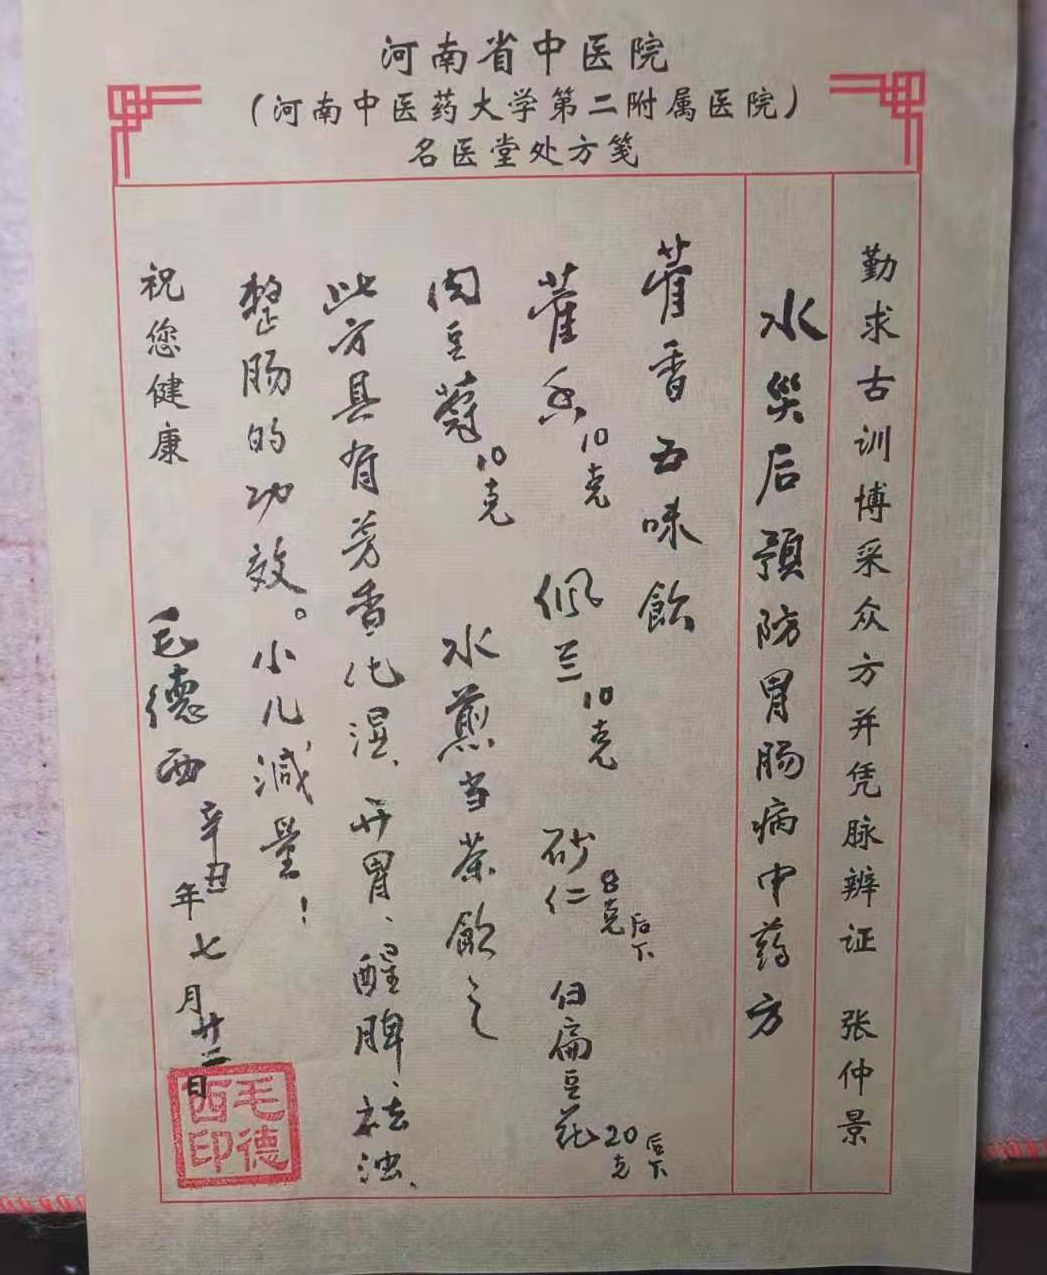 河南省中医院
（河南中医药大学第二附属医院）
名医堂处方笺
勤求古训博采众方并凭脉辨证 张仲景
水災后預防胃肠病中药方
藿香五味飲
藿香10克 佩兰10克 砂仁8克后下 白扁豆花20克后下
肉豆蔻10克 水煎当茶飲之
此方具有芳香化湿、开胃、醒脾、祛浊、
整肠的功效。小儿減量！
祝您健康 毛德西 辛丑年七月廿三日
毛德西印